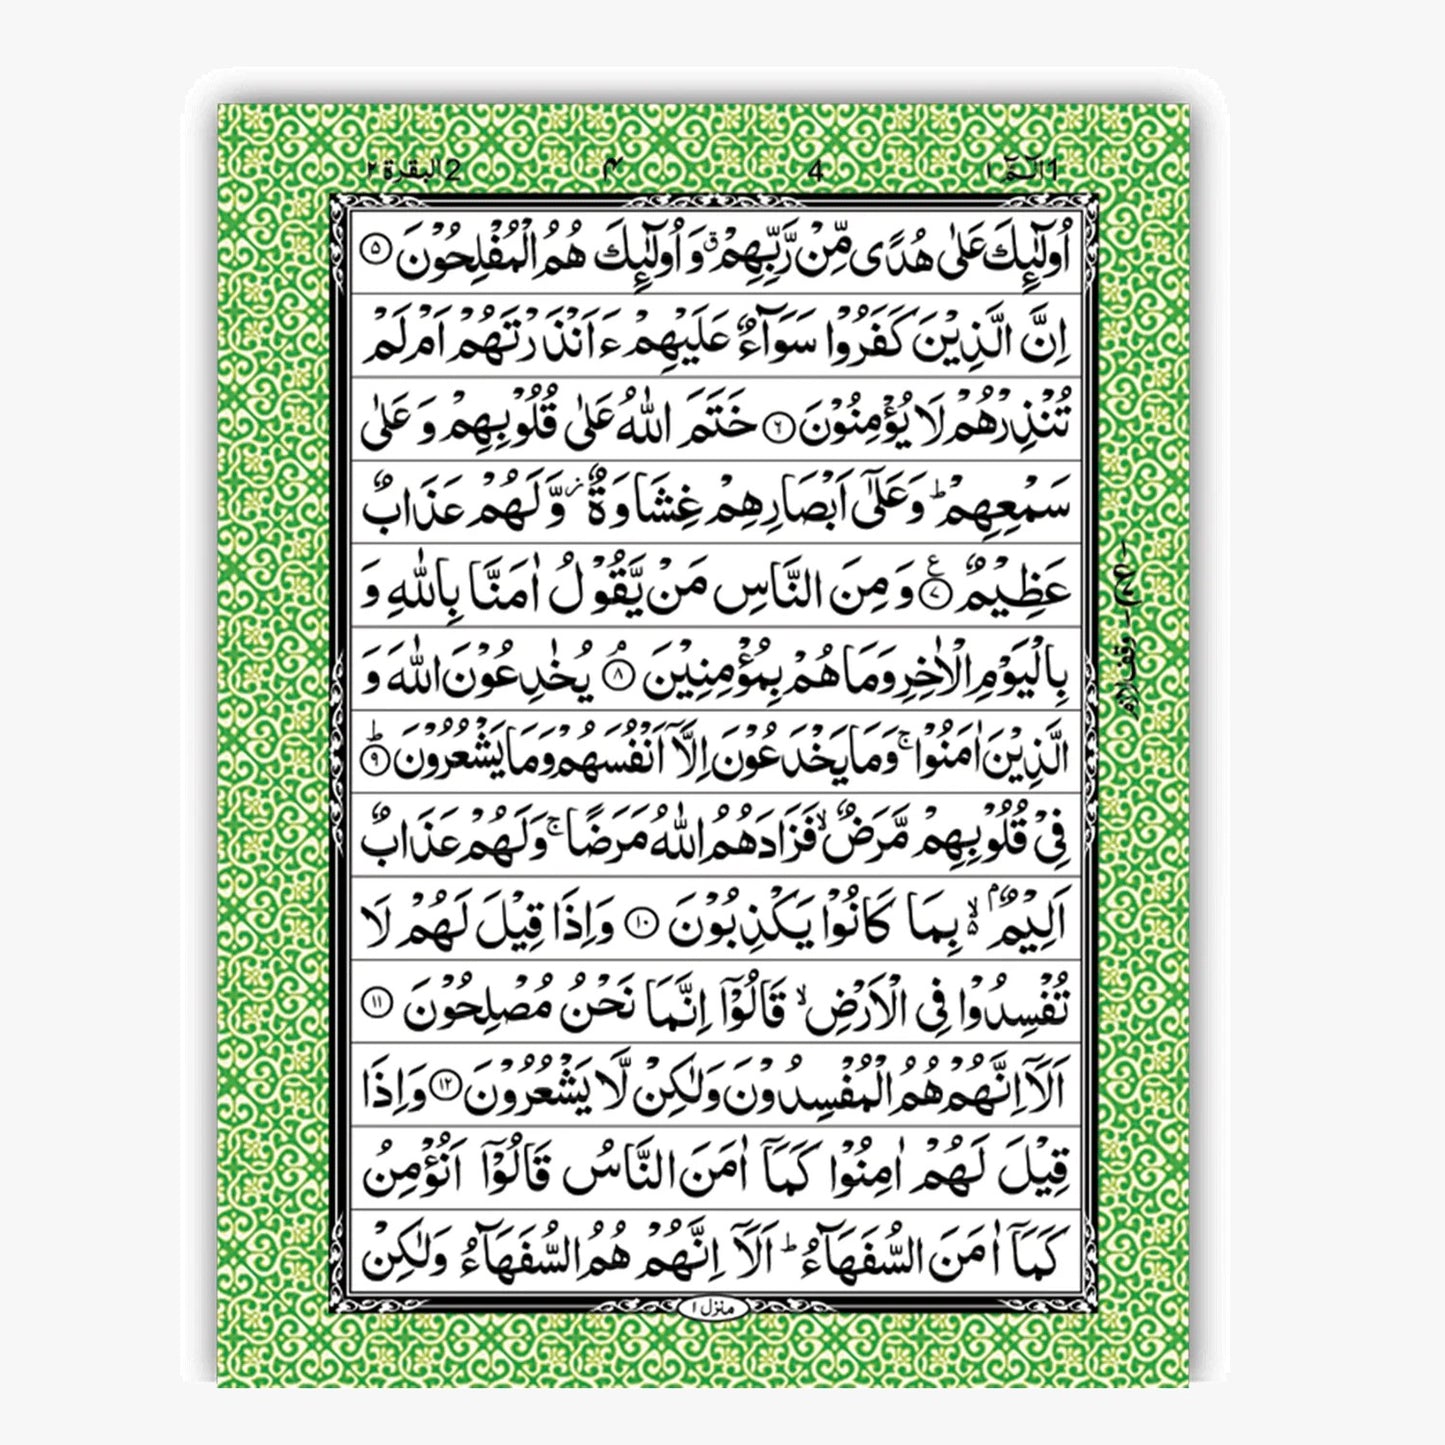 الٓـمّٓ ١ 1 4 ۴ 2 البقرة ٢
اُولٰٓئِكَ عَلٰى هُدًى مِّنْ رَّبِّهِمْ ۗ وَ اُولٰٓئِكَ هُمُ الْمُفْلِحُوْنَ ۝۵
اِنَّ الَّذِيْنَ كَفَرُوْا سَوَآءٌ عَلَيْهِمْ ءَاَنْذَرْتَهُمْ اَمْ لَمْ
تُنْذِرْهُمْ لَا يُؤْمِنُوْنَ ۝۶ خَتَمَ اللّٰهُ عَلٰى قُلُوْبِهِمْ وَ عَلٰى
سَمْعِهِمْ ؕ وَ عَلٰٓى اَبْصَارِهِمْ غِشَاوَةٌ ز وَّ لَهُمْ عَذَابٌ
عَظِيْمٌ ۝۷ ع وَ مِنَ النَّاسِ مَنْ يَّقُوْلُ اٰمَنَّا بِاللّٰهِ وَ
بِالْيَوْمِ الْاٰخِرِ وَمَا هُمْ بِمُؤْمِنِيْنَ ۝۸ۘ يُخٰدِعُوْنَ اللّٰهَ وَ
الَّذِيْنَ اٰمَنُوْا ۚ وَمَا يَخْدَعُوْنَ اِلَّاۤ اَنْفُسَهُمْ وَمَا يَشْعُرُوْنَ ۝۹ؕ
فِيْ قُلُوْبِهِمْ مَّرَضٌ ۙ فَزَادَهُمُ اللّٰهُ مَرَضًا ۚ وَلَهُمْ عَذَابٌ
اَلِيْمٌۢ ۙ۬ بِمَا كَانُوْا يَكْذِبُوْنَ ۝۱۰ وَاِذَا قِيْلَ لَهُمْ لَا
تُفْسِدُوْا فِى الْاَرْضِ ۙ قَالُوْۤا اِنَّمَا نَحْنُ مُصْلِحُوْنَ ۝۱۱
اَلَاۤ اِنَّهُمْ هُمُ الْمُفْسِدُوْنَ وَلٰكِنْ لَّا يَشْعُرُوْنَ ۝۱۲ وَاِذَا
قِيْلَ لَهُمْ اٰمِنُوْا كَمَاۤ اٰمَنَ النَّاسُ قَالُوْۤا اَنُؤْمِنُ
كَمَاۤ اٰمَنَ السُّفَهَآءُ ؕ اَلَاۤ اِنَّهُمْ هُمُ السُّفَهَآءُ وَلٰكِنْ
منزل ۱
وقف لازم